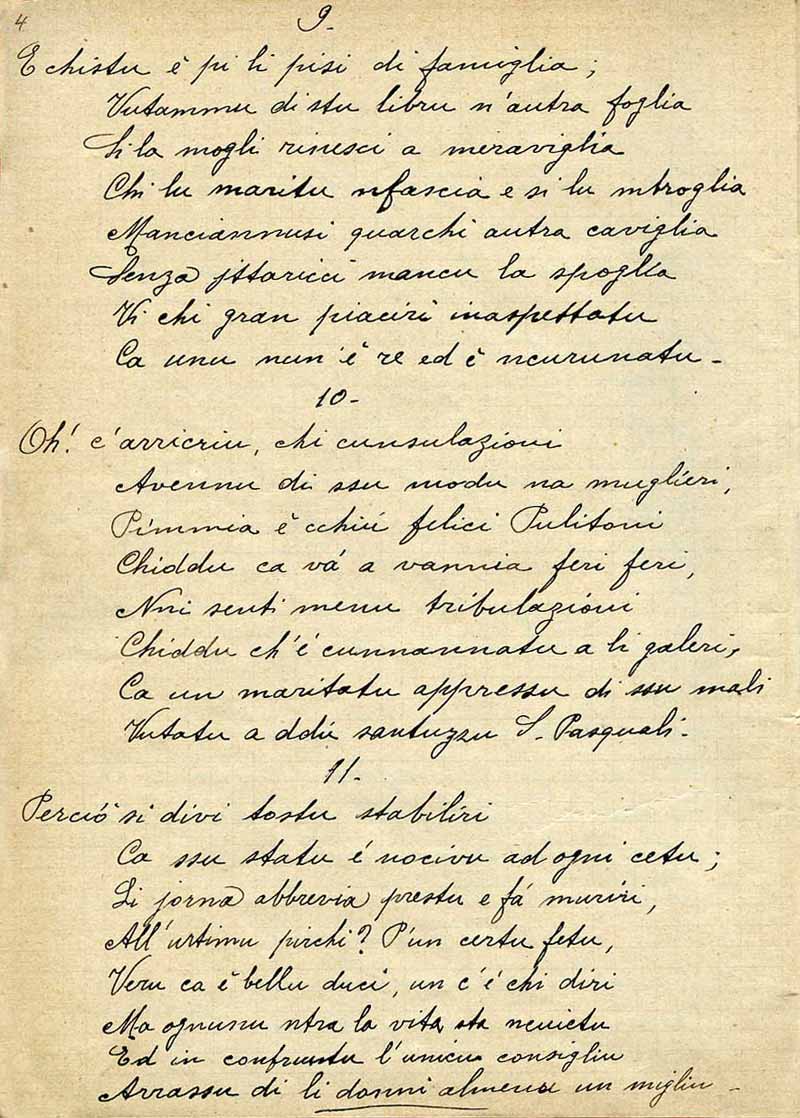 4
9-
E chistu è pi li pisi di famiglia;
Vutammu di stu libru n'autra foglia
Si la mogli rinesci a meraviglia
Chi lu maritu nfascia e si lu mtroglia
Manciannusi quarchi autra caviglia
Senza jttaricci mancu la spoglia
Vi chi gran piaciri inaspettatu
Ca unu nun è re ed è ncurunatu -
10-
Oh! c'arricriu, chi cunsulazioni
Avennu di ssu modu na muglieri,
Pimmia è cchiú felici Pulitoni
Chiddu ca vá a vannia feri feri,
Nni senti menu tribulazioni
Chiddu ch'é cunnannatu a li galeri,
Ca un maritatu appressu di ssu mali
Vutatu a ddú santuzzu S. Pasquali -
11-
Perció si divi tostu stabiliri
Ca ssu statu é nocivu ad ogni cetu;
Li jorna abbrevia prestu e fá muriri,
All'urtimu pirchi? P'un certu fetu,
Veru ca è bellu duci, un c'é chi diri
Ma ognunu ntra la vita sta ncuictu
Ed in confruntu l'unicu consigliu
Arrassu di li donni almenu un migliu -